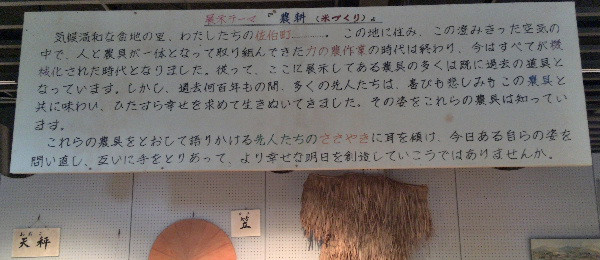 展示テーマ 『 農耕 (米づくり)』
気候温和な当地の里、わたしたちの佐伯町………。この地に住み、この澄みきった空気の
中で、人と農具が一体となって取り組んできた力の農作業の時代は終わり、今はすべてが機
械化された時代となりました。従って、ここに展示してある農具の多くは既に過去の道具と
なっています。しかし、過去何百年もの間、多くの先人たちは、喜びも悲しみもこの農具と
共に味わい、ひたすら幸せを求めて生きぬいてきました。その姿をこれらの農具は知ってい
ます。
これらの農具をとおして語りかける先人たちのささやきに耳を傾け、今日ある自らの姿を
問い直し、互いに手をとりあって、より幸せな明日を創造していこうではありませんか。
笠
天秤